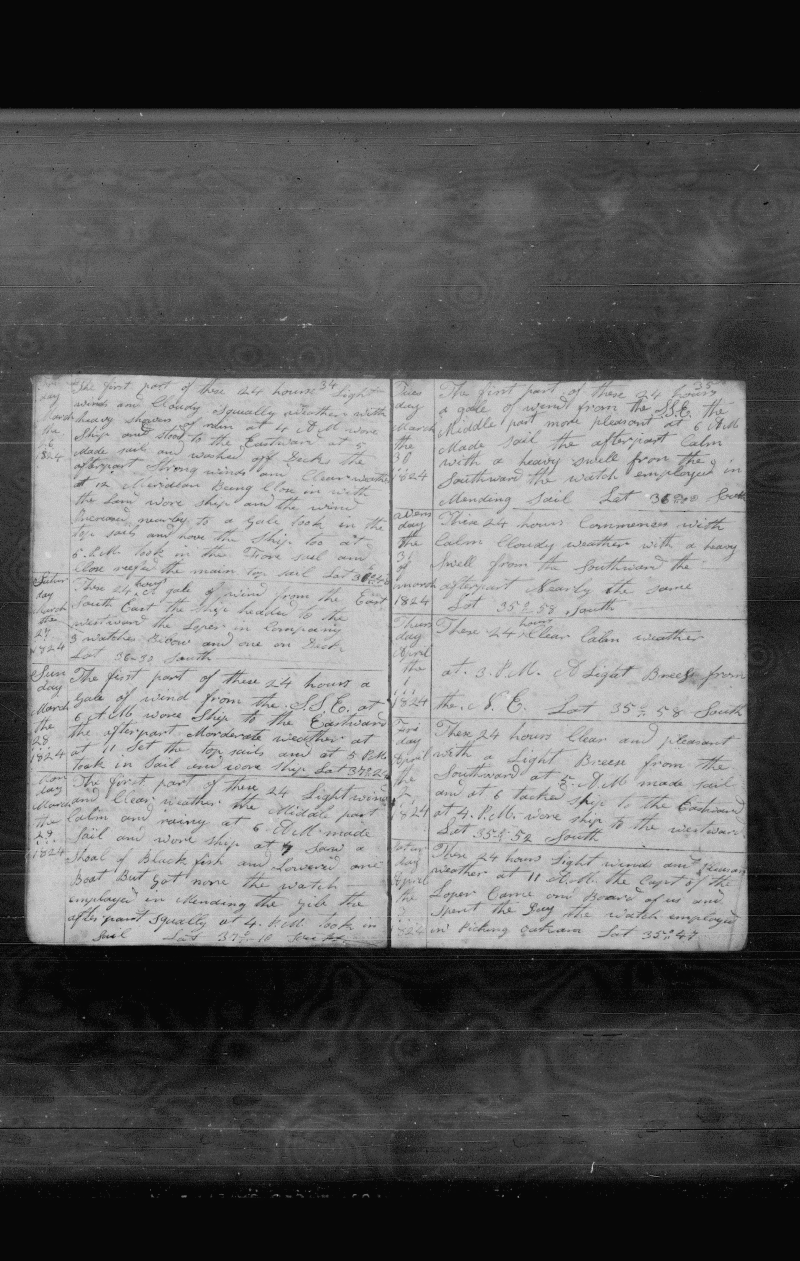 34
day
March
the
26
1824
The first part of these 24 hours Light
winds and Cloudy Squally weather with
heavy showers of rain at 4 A M wore
Ship and stood to the Eastward at 5
Made sail and washed off Deck the
afterpart Strong winds and Clear weather
at 12 Meridian Being Close in with
the Land wore ship and the wind
Increased nearly to a Gale took in the
top sails and hove the Ship too at
6 P.M. took in the Fore sail and
close reefed the main top sail Lat 36
Satur
day
March
the
27
1824
These 24 hours A gale of wind from the
South East the Ship headed to the East
westward the Loper in Company
3 watches Below and one on Deck
Lat 36=30 South
Sun
day
March
the
28
1824
The first part of these 24 hours a
Gale of wind from the S.S.E. at
6 A.M. wore Ship to the Eastward
the afterpart Morderate weather at
at 11 Set the top sails and at 5 P.M.
took in Sail and wore ship Lat 37=24
Mon
day
March
the
29
1824
The first part of these 24 Light wind
and Clear weather the Middle part
Calm and rainy at 6 A.M. made
Sail and wore ship at 7 Saw a
Shoal of Black fish and Lowered one
Boat But Got none the watch
employed in Mending the Gib the
after part Squally at 4. P.M. took in
Sail Lat 37=10 South
35
Tues
day
March
the
30
1824
The first part of these 24 hours
a gale of wind from the S.S.E. the
Middle part more pleasant at 6 A.M
Made sail the afterpart Calm
with a heavy swell from the
Southward the watch employed in
Mending Sail Lat 36=00 South
Wens
day
the
31
of
march
1824
These 24 hours Commences with
Calm Cloudy weather with a heavy
Swell from the Southward the
afterpart Nearly the same
Lat 35=58 South
Thurs
day
April
the
1
1824
These 24 hours Clear Calm weather
at 3. P.M. A Light Breeze from
the N. E. Lat 35=58 South
Fri
day
April
the
2
1824
These 24 hours Clear and pleasant
with a Light Breeze from the
Southward at 5 A.M made sail
and at 6 tacked ship to the Eastward
at 4. P.M. wore ship to the westward
Lat 35=52 South
Satur
day
April
the
3
1824
These 24 hours Light winds and pleasant
weather at 11 A.M. the Capt of the
Loper Came on Board of us and
Spent the Day the watch employed
in Picking oakum Lat 35=47